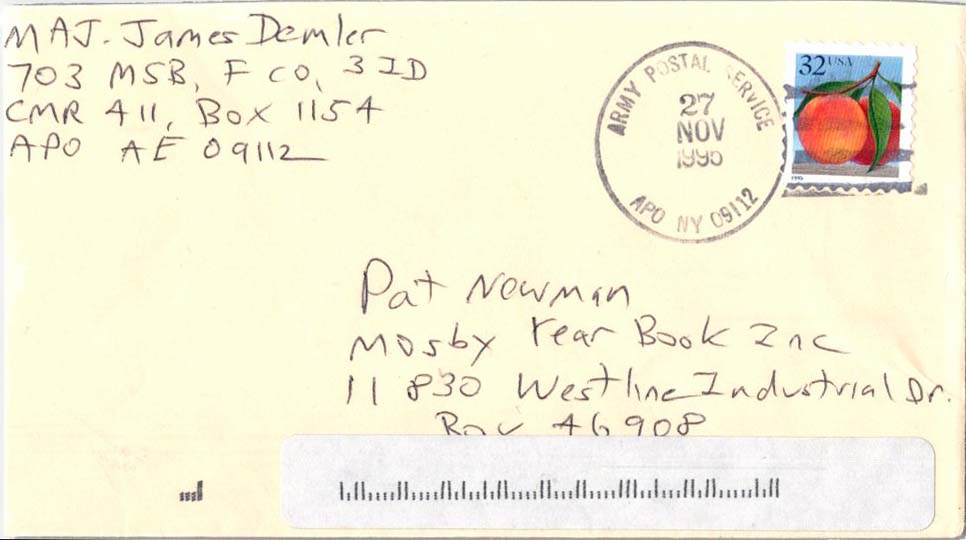 MAJ. James Demler
703 MSB, F CO, 3 ID
CMR 411, Box 1154
APO AE 09112
ARMY POSTAL SERVICE
27
NOV
1995
APO NY 09112
32 USA
1995
Pat Newman
Mosby Year Book Inc
11 830 Westline Industrial Dr.
Box 46908